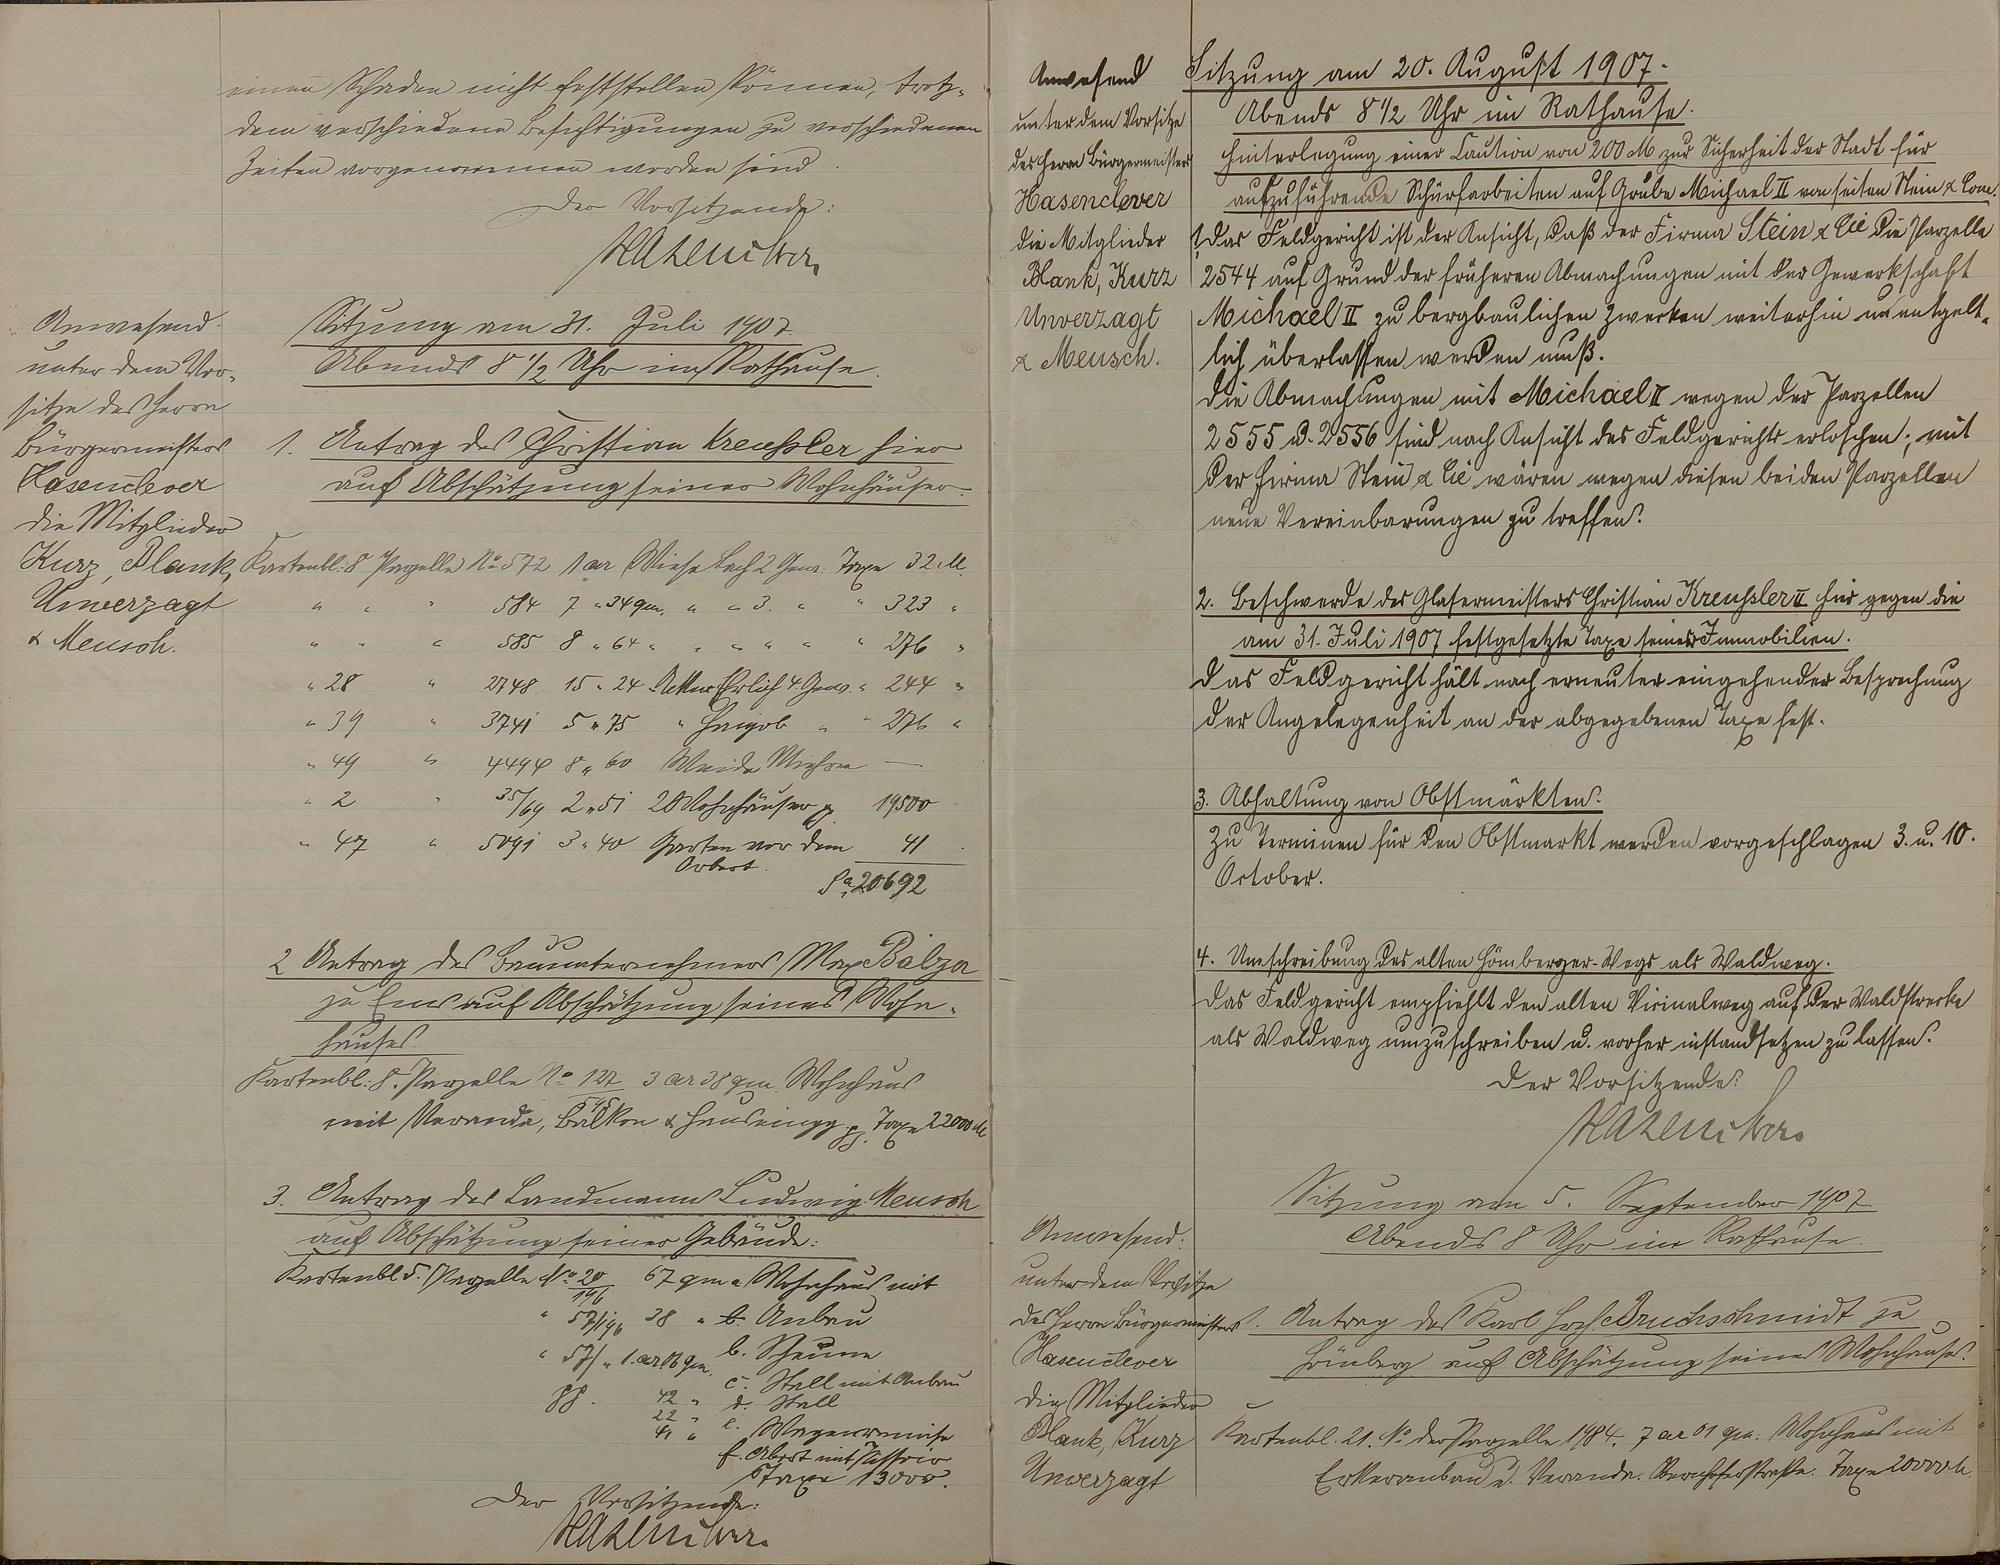 einen Schaden nicht feststellen können, trotz-
dem verschiedene Besichtigungen zu verschiedenen
Zeiten vorgenommen worden sind.
Der Vorsitzende:
Hasenclever
Anwesend.
unter dem Vor-
sitze des Herrn
Bürgermeisters
Hasenclever
die Mitglieder
Kurz, Plank,
Unverzagt
& Meusch.
Sitzung am 31. Juli 1907
Abends 8 1/2 Uhr im Rathause.
1. Antrag des Christian Kreußler hier
auf Abschätzung seiner Wohnhäuser.
Kartenbl: 8 Parzelle No 572 1 ar Wiese Bach 2 Gew. Taxe 32 M.
" " " 584 7 " 34 qm, " " 3. " " 323 "
" " " 585 8 " 64 " " " " " " 276 "
" 28 " 2748 15 " 24 Acker Erlich 4 Gew. " 244 "
" 39 " 3741 5 " 75 " " " 276 "
" 49 " 8 " 60 Weide —
" 2 " 35/69 2 " 51 2 Wohnhäuser pp. 19500
" 47 " 5091 3 " 40 Garten vor dem 41
Sa. 20692
2 Antrag des Bauunternehmers Max Balzer
zu Ems auf Abschätzung seines Wohn-
hauses.
Kartenbl: 8. Parzelle No 127 3 ar 38 qm Wohnhaus
mit Veranda, Balkon & pp. Taxe 22000 M
3. Antrag des Landmanns Ludwig Meusch
auf Abschätzung seiner Gebäude:
Kartenbl 5. Parzelle No 20/196 67 qm a Wohnhaus mit
" 57/196 38 " b. Anbau
" 57/" 1 ar 16 qm. b. Scheune
c. Stall mit Anbau
pp. 42 " d. Stall
22 " e. Wagenremise
41 " f. Abort mit
Taxe 13000.
Der Vorsitzende:
Hasenclever
Anwesend
unter dem Vorsitze
des Herrn Bürgermeisters
Hasenclever
die Mitglieder
Plank, Kurz
Unverzagt
& Meusch.
Sitzung am 20. August 1907.
Abends 8 1/2 Uhr im Rathause.
Hinterlegung einer Caution von 200 M zur Sicherheit der Stadt für
aufzuführende Schürfarbeiten auf Grube Michael II von seiten Stein & Com.
1. Das Feldgericht ist der Ansicht, daß der Firma Stein & Cie die Parzelle
2544 auf Grund der früheren Abmachungen mit der Gewerkschaft
Michael II zu bergbaulichen Zwecken weiterhin unentgelt-
lich überlassen werden muß.
Die Abmachungen mit Michael II wegen der Parzellen
2555 u. 2556 sind nach Ansicht des Feldgerichts erloschen; mit
der Firma Stein & Cie wären wegen diesen beiden Parzellen
neue Vereinbarungen zu treffen.
2. Beschwerde des Glasermeisters Christian Kreußler II hier gegen die
am 31. Juli 1907 festgesetzte Taxe seiner Immobilien.
Das Feldgericht hält nach erneuter eingehender Besprechung
der Angelegenheit an der abgegebenen Taxe fest.
3. Abhaltung von Obstmärkten.
Zu Terminen für den Obstmarkt werden vorgeschlagen 3. u. 10.
October.
4. Umschreibung des alten Hömberger-Wegs als Waldweg.
Das Feldgericht empfiehlt den alten Vicinalweg auf der Waldstrecke
als Waldweg umzuschreiben u. vorher instandsetzen zu lassen.
Der Vorsitzende:
Hasenclever
Anwesend:
unter dem Vorsitze
des Herrn Bürgermeisters
Hasenclever
die Mitglieder
Plank, Kurz
Unverzagt
Sitzung am 5. September 1907
Abends 8 Uhr im Rathause.
1. Antrag des Karl Bruchschmidt zu
Hömberg auf Abschätzung seines Wohnhauses.
Kartenbl. 21. No der Parzelle 1984. 7 ar 01 qm. Wohnhaus mit
Erkeranbau u. Veranda. Taxe 20000 M.